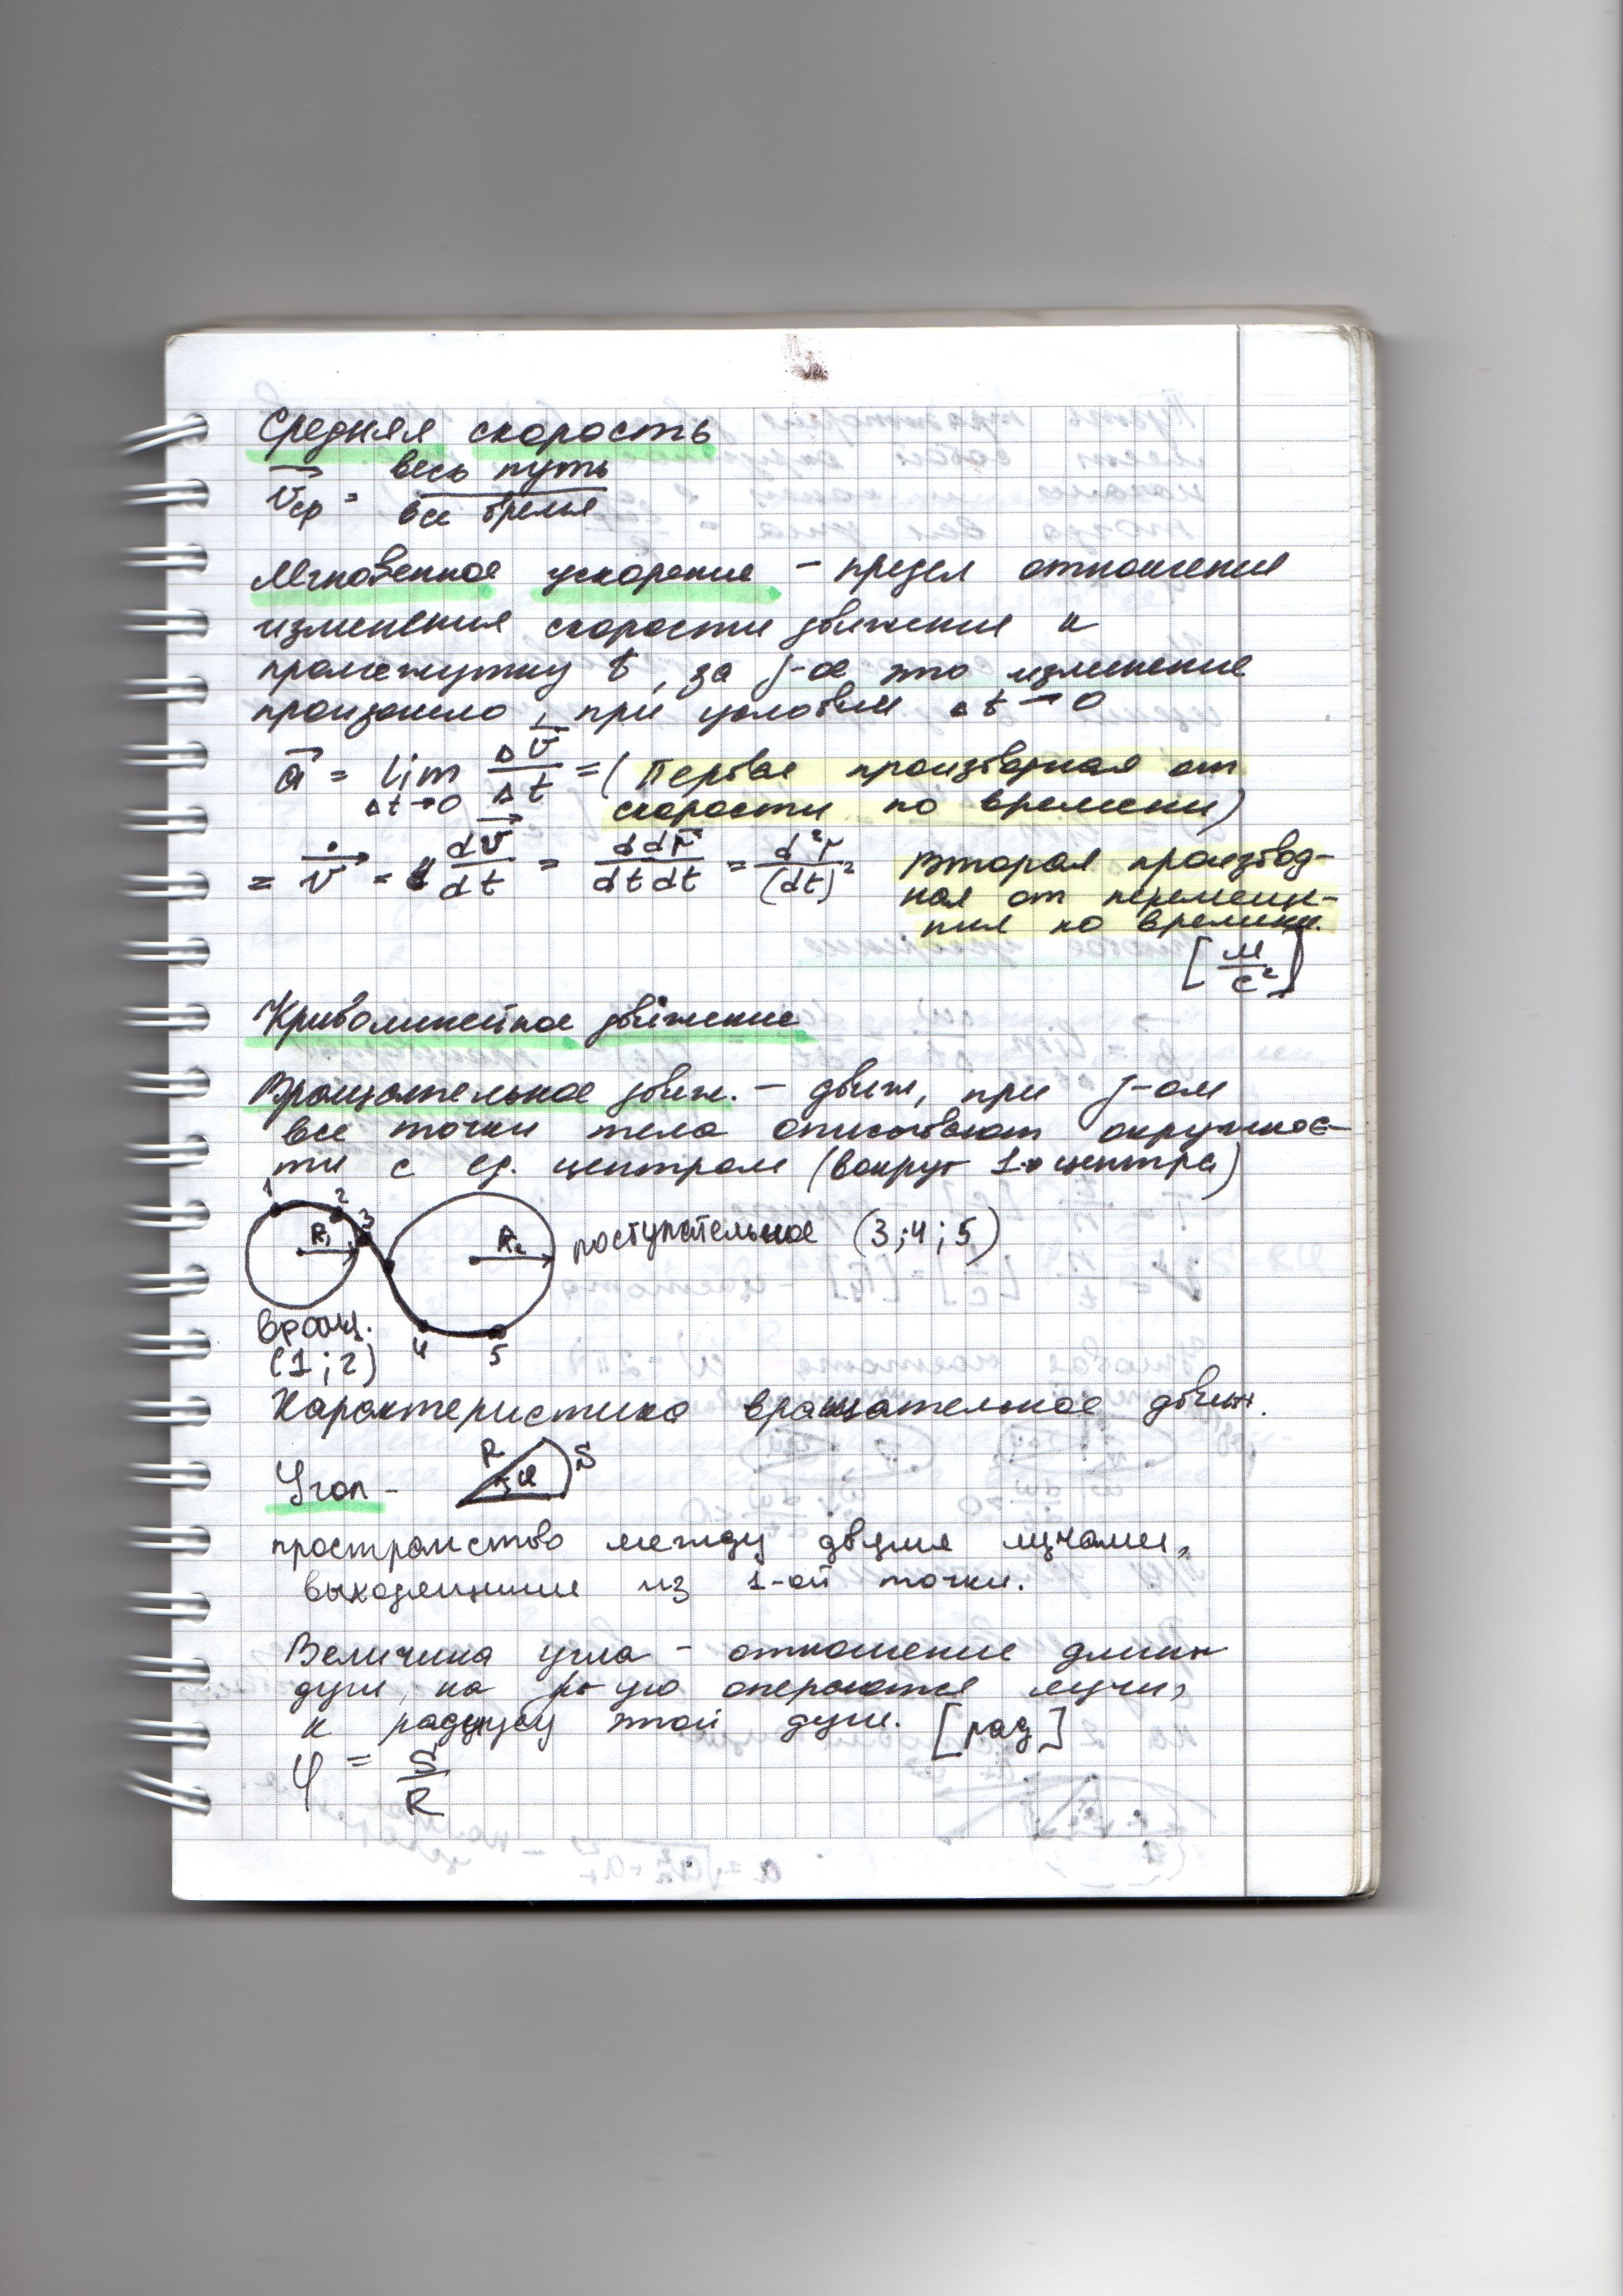 Средняя скорость
v⃗ср = весь путь / все время
Мгновенное ускорение – предел отношения
изменения скорости движения к
промежутку t, за j-ое это изменение
произошло, при условии Δt→0
a⃗ = lim Δt→0 Δv⃗/Δt = (Первая производная от
скорости по времени)
= v̇⃗ = dv⃗/dt = ddr⃗/dtdt = d²r/(dt)² Вторая производ-
ная от перемеще-
ния по времени.
[м/с²]
Криволинейное движение
Вращательное движ. – движ, при j-ом
все точки тела описывают окружнос-
ти с ед. центром (вокруг 1 центра)
1 2 3 R₁ R₂ поступательное (3;4;5)
вращ. 4 5
(1;2)
Характеристика вращательное движ.
Угол – R φ S
пространство между двумя лучами,
выходящими из 1-ой точки.
Величина угла – отношение длины
дуги, на ую опираются лучи,
к радиусу этой дуги. [рад]
φ = S/R